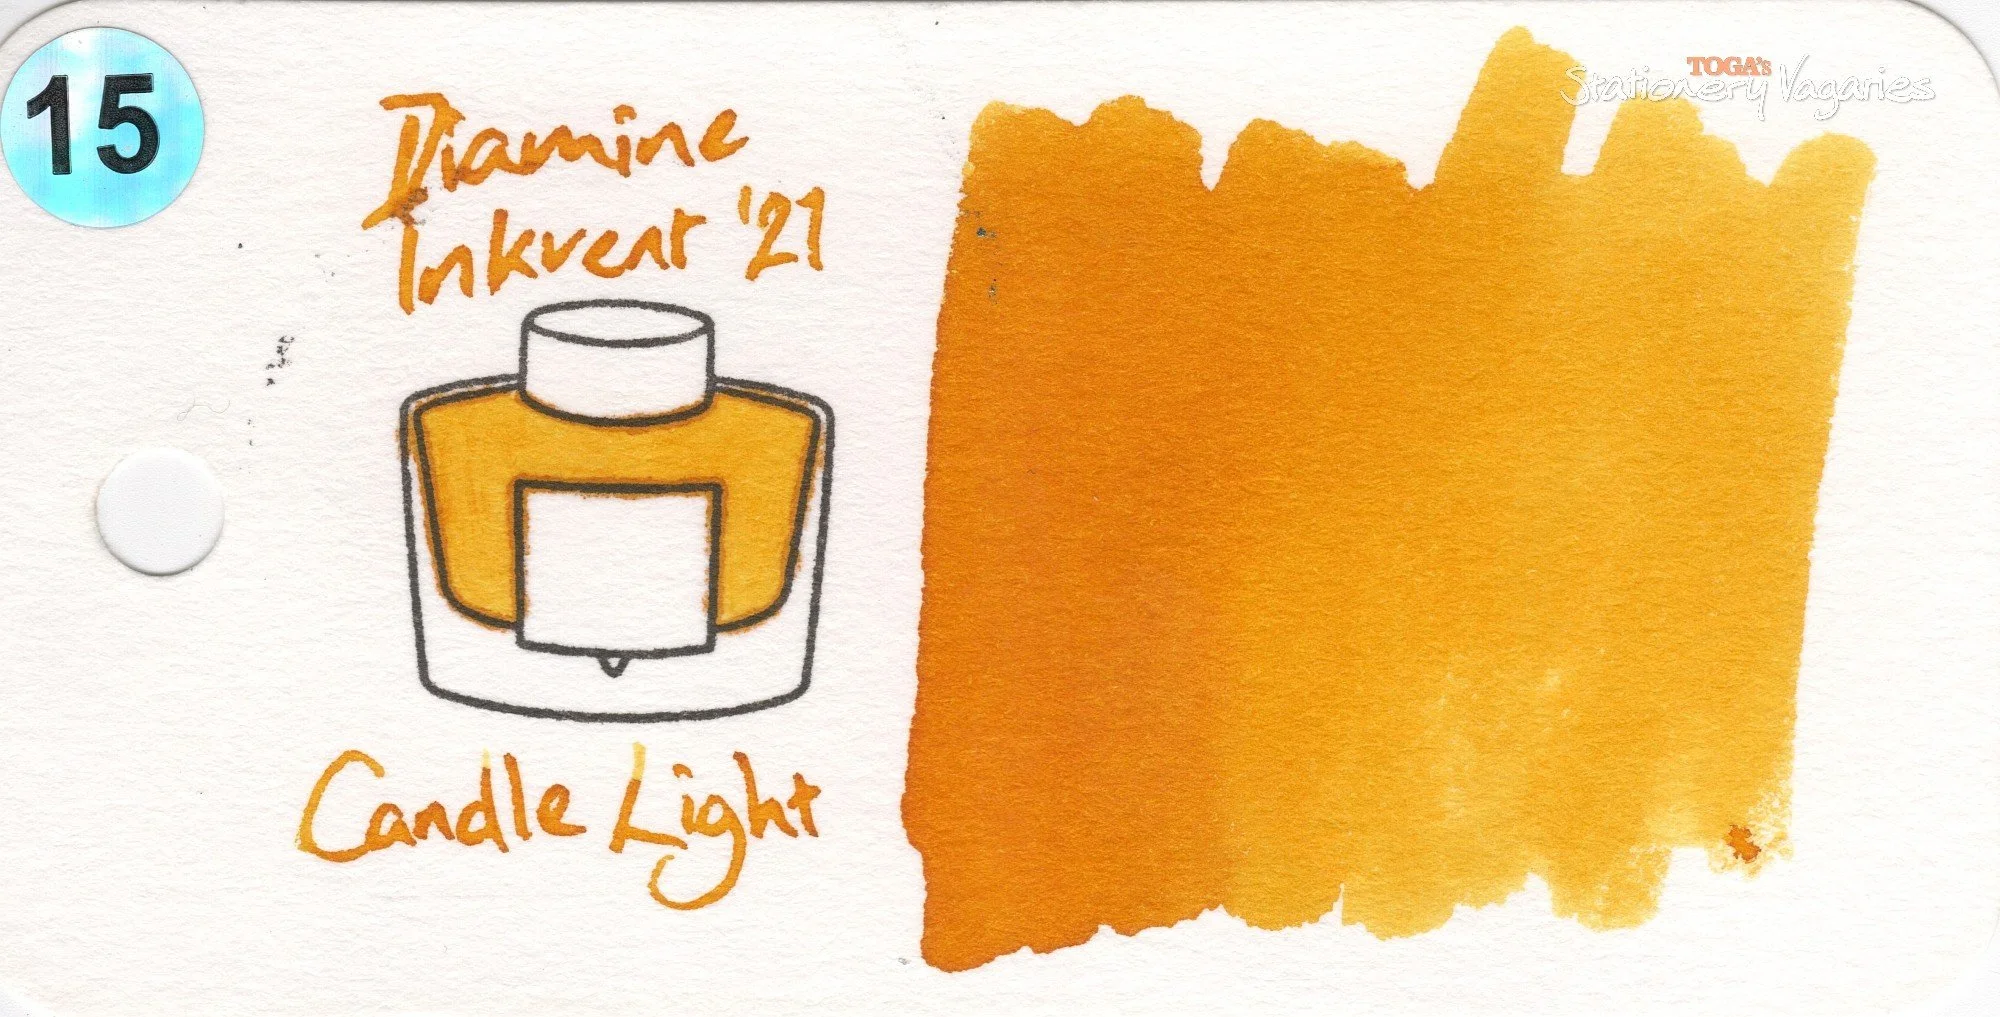 15
Diamine
Inkvent '21
Candle Light
TOGA's
Stationery Vagaries